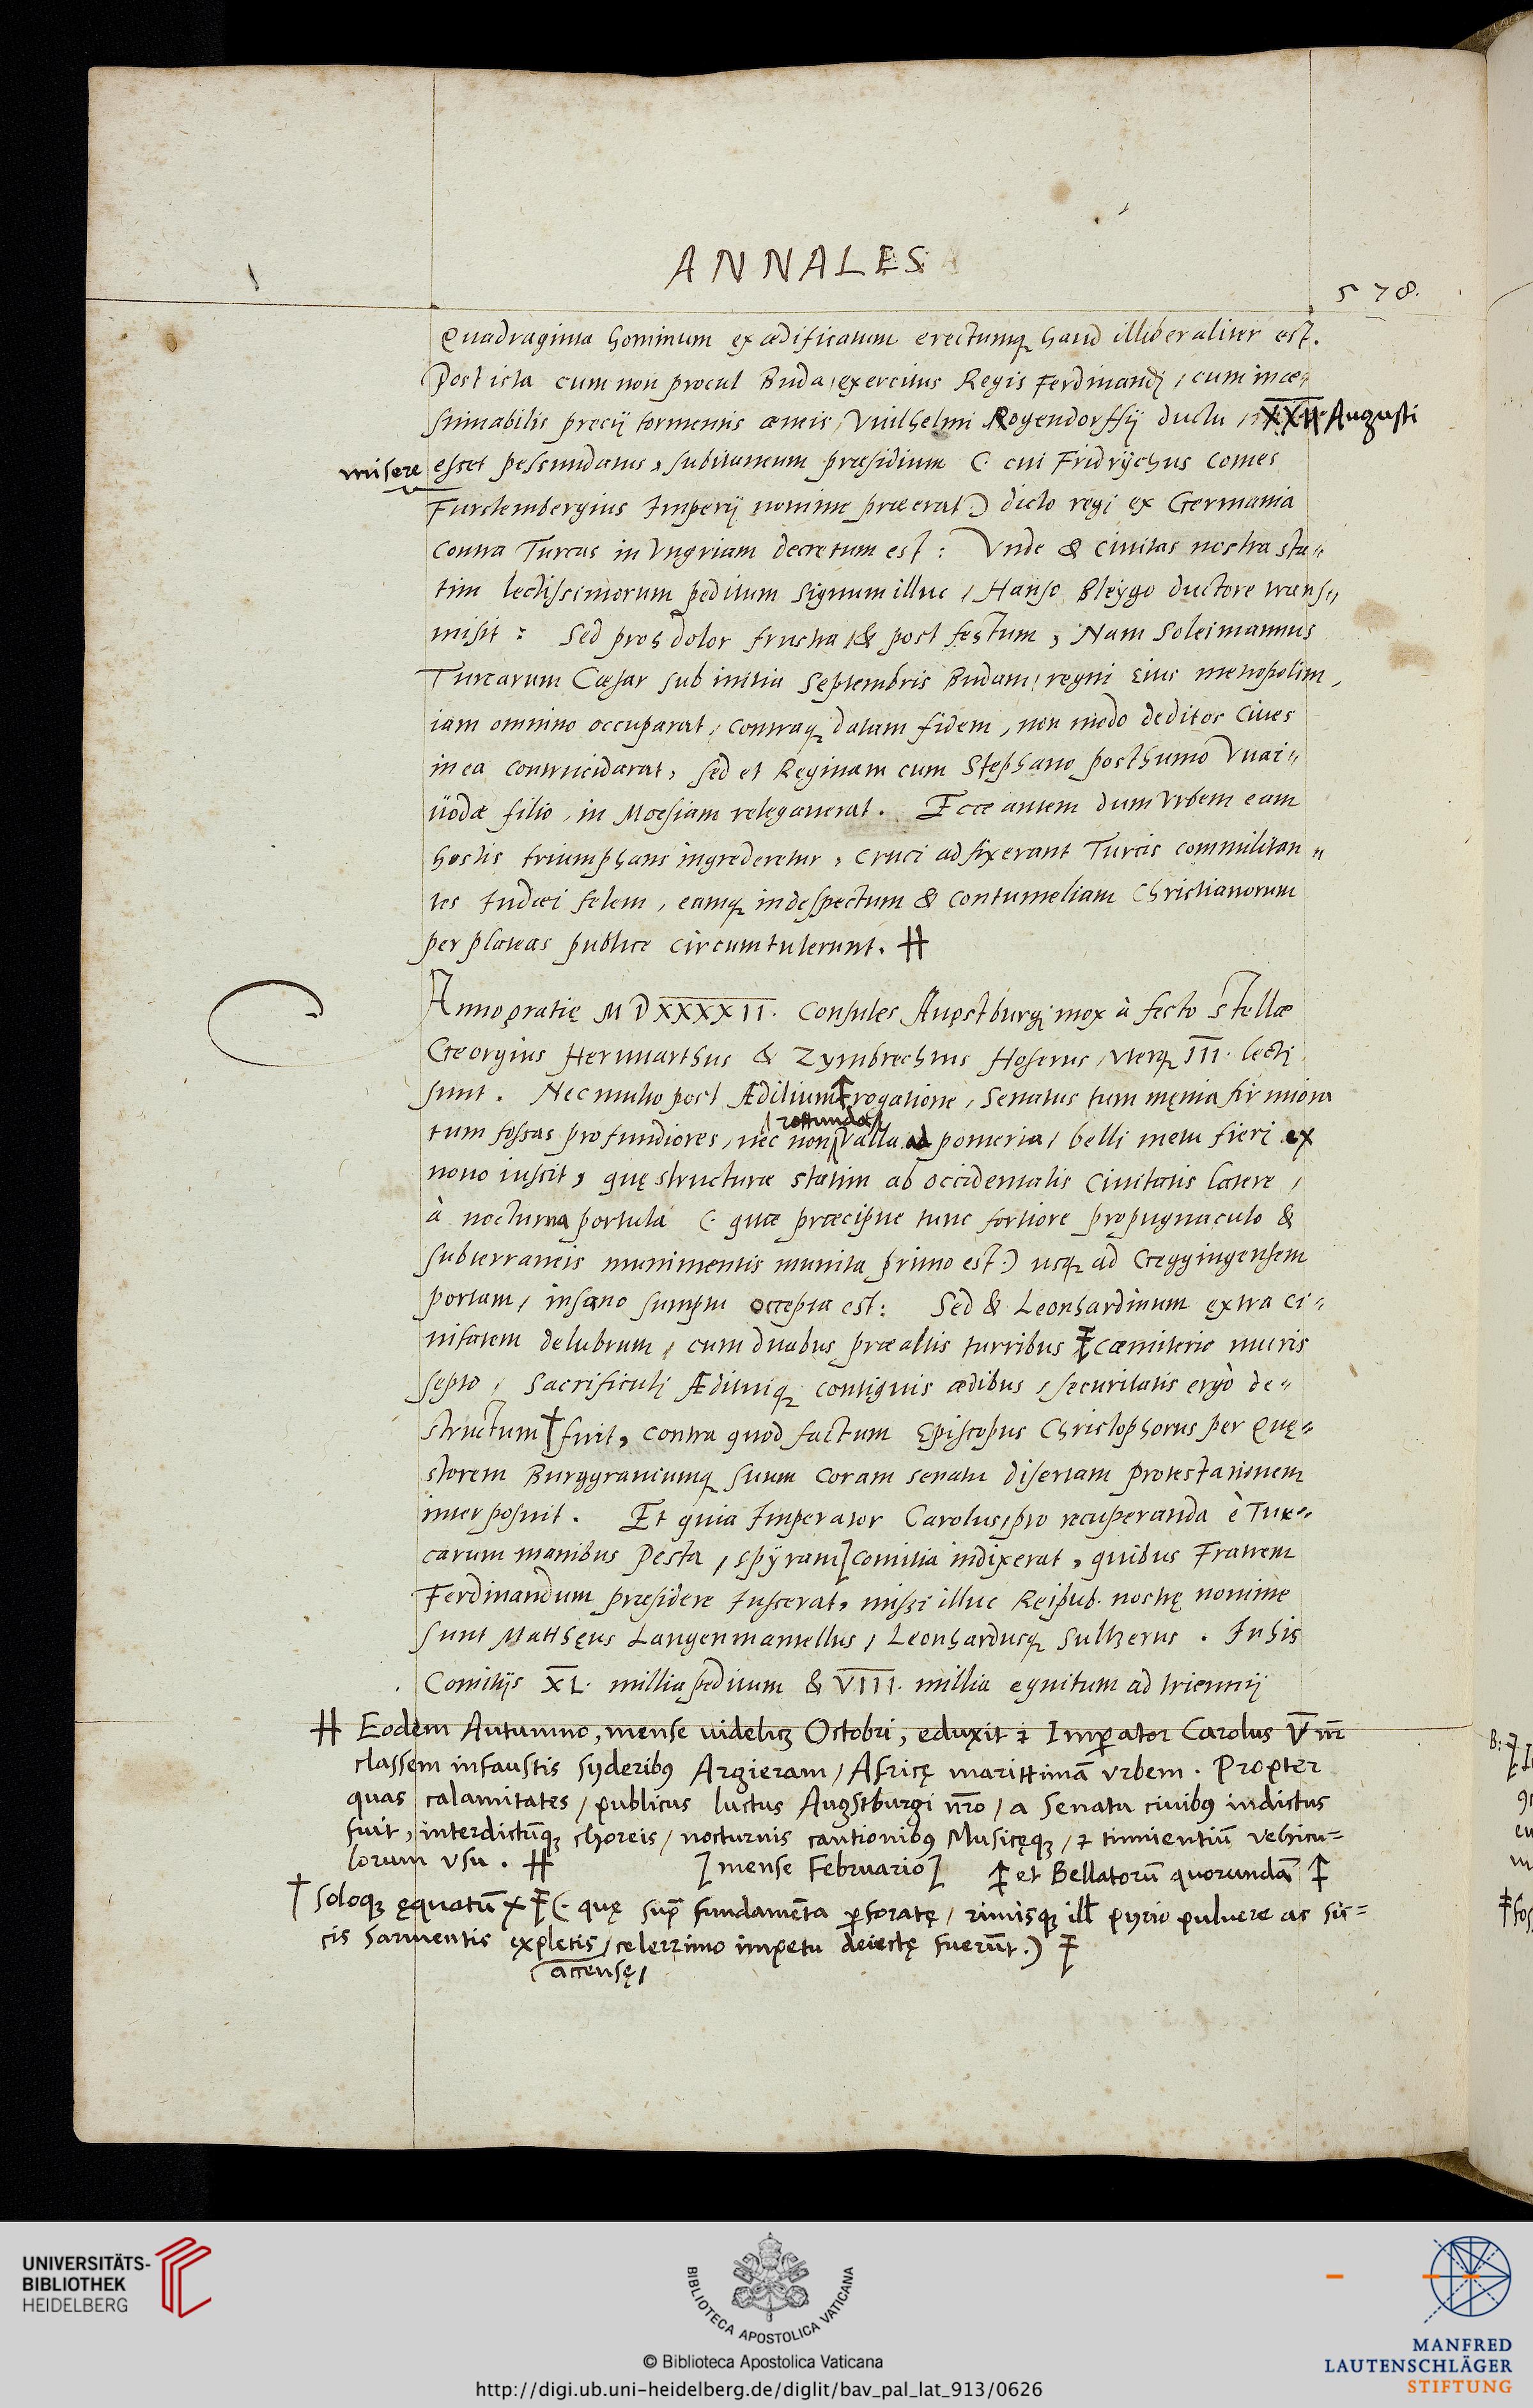 ANNALES
578.
Quadraginta hominum exædificatum erectumq haud illiberaliter est.
Post ista cum non procul Buda, exercitus Regis Ferdinandi, cum inæ-
stimabilis precij tormentis æneis, Vuilhelmi Rogendorffij ductu, XXII Augusti
misere esset pessundatus, subitaneum præsidium (. cui Fridrÿchus Comes
Furstembergius Imperij nomine præerat.) dicto regi ex Germania
contra Turcas in Vngriam decretum est: Vnde & Ciuitas nostra sta-
tim lectissimorum peditum signum illuc, Hanso Bleÿgo ductore trans-
misit: Sed proh dolor frustra & post festum, Nam Soleimannus
Turcarum Cæsar sub initia Septembris Budam, regni Eius metropolim,
iam omnino occuparat, contraq datam fidem, non modo deditos Ciues
in ea contrucidarat, sed et Reginam cum Stephano posthumo Vuai-
uodæ filio, in Moesiam relegauerat. Ecce autem dum Vrbem eam
hostis triumphans ingrederetur, cruci adfixerant Turcis commilitan-
tes Iudæi felem, eamq in despectum & contumeliam Christianorum
per plateas publice circumtulerunt. #
Anno gratię MDXXXXII. Consules Augstburgi mox à festo Stellæ
Georgius Heruuarthus & Zymbrechtus Hoserus, Vterq III. lecti
sunt. Nec multo post Ædilium rogatione, Senatus tum męnia firmiora
rottunda
tum fossas profundiores, nec non Valla ad pomeria, belli metu fieri ex
nouo iussit, quę structuræ statim ab occidentalis Ciuitatis latere,
à nocturna portula (. quæ præcipue tunc fortiore propugnaculo &
subterraneis munimentis munita primo est.) usq ad Geggingensem
portam, insano sumptu occepta est: Sed & Leonhardinum extra ci-
uitatem delubrum, cum duabus præaltis turribus cœmiterio muris
septo, Sacrificuli Ædituiq contiguis ædibus, securitatis ergò de-
structum † fuit, contra quod factum Episcopus Christophorus per Quę-
storem Burggrauiumq suum coram senatu disertam protestationem
interposuit. Et quia Imperator Carolus, pro recuperanda è Tur-
carum manibus Pesta, Spÿram] comitia indixerat, quibus Fratrem
Ferdinandum præsidere Iusserat, missi illuc Reipub. nostrę nomine
sunt Matthęus Langenmantellus, Leonhardusq Sultzerus. In his
Comitijs XL. millia peditum & VIII. millia equitum ad triennij
# Eodem Autumno, mense uidelicz Octobri, eduxit Imperator Carolus V nr̄
classem infaustis syderibꝯ Argieram, Africę marittimā vrbem. Propter
quas calamitates, publicus luctus Augstburgi nr̄o, a Senatu ciuibꝯ indictus
fuit, interdictūqz choreis, nocturnis cantionibꝯ Musicęqz, & tinnientiū vehicu-
lorum vsu. #
[mense Februario]
et Bellatorū quorundā
† soloqz ęquatū (. quę supr̄ fundamēta ꝑforatę, rimisqz ill̄ pyrio puluere ac sic-
cis sarmentis expletis, celerrimo impetu deiectę fuerūt.)
accensę,
UNIVERSITÄTS-
BIBLIOTHEK
HEIDELBERG
BIBLIOTECA APOSTOLICA VATICANA
© Biblioteca Apostolica Vaticana
http://digi.ub.uni-heidelberg.de/diglit/bav_pal_lat_913/0626
MANFRED
LAUTENSCHLÄGER
STIFTUNG